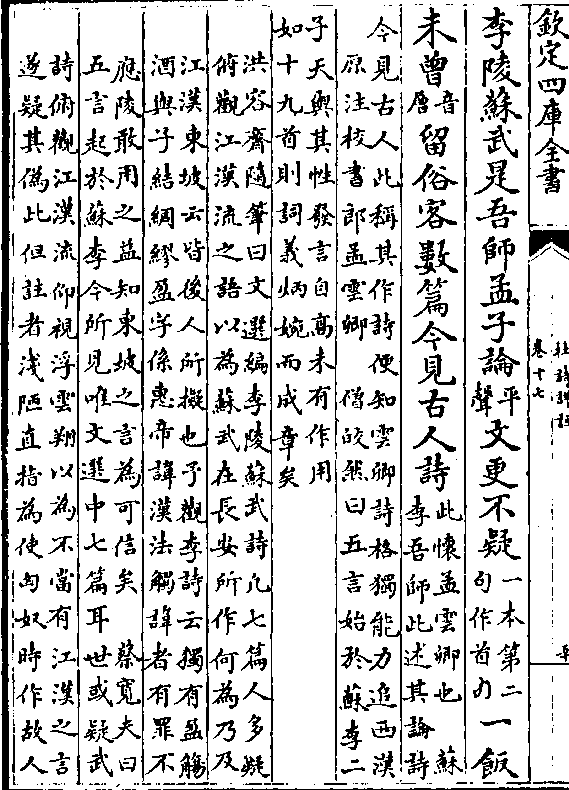 欽定四庫全書
杜詩詳註
卷十七
李陵蘇武是吾師孟子論平聲文更不疑一本第二句作首句一飯
未曾音層留俗客數篇今見古人詩此懷孟雲卿也 蘇
李吾師此述其論詩
今見古人此稱其作詩便知雲卿詩格獨能力追西漢
原注校書郎孟雲卿 僧皎然曰五言始於蘇李二
子天與其性發言自高未有作用
如十九首則詞義炳婉而成章矣
洪容齋隨筆曰文選編李陵蘇武詩凡七篇人多疑
俯觀江漢流之語以為蘇武在長安所作何為乃及
江漢東坡云皆後人所擬也予觀李詩云獨有盈觴
酒與子結綢繆盈字係惠帝諱漢法觸諱者有罪不
應陵敢用之益知東坡之言為可信矣 蔡寬夫曰
五言起於蘇李今所見唯文選中七篇耳世或疑武
詩俯觀江漢流仰視浮雲翔以為不當有江漢之言
遂疑其偽此但註者淺陋直指為使匈奴時作故人